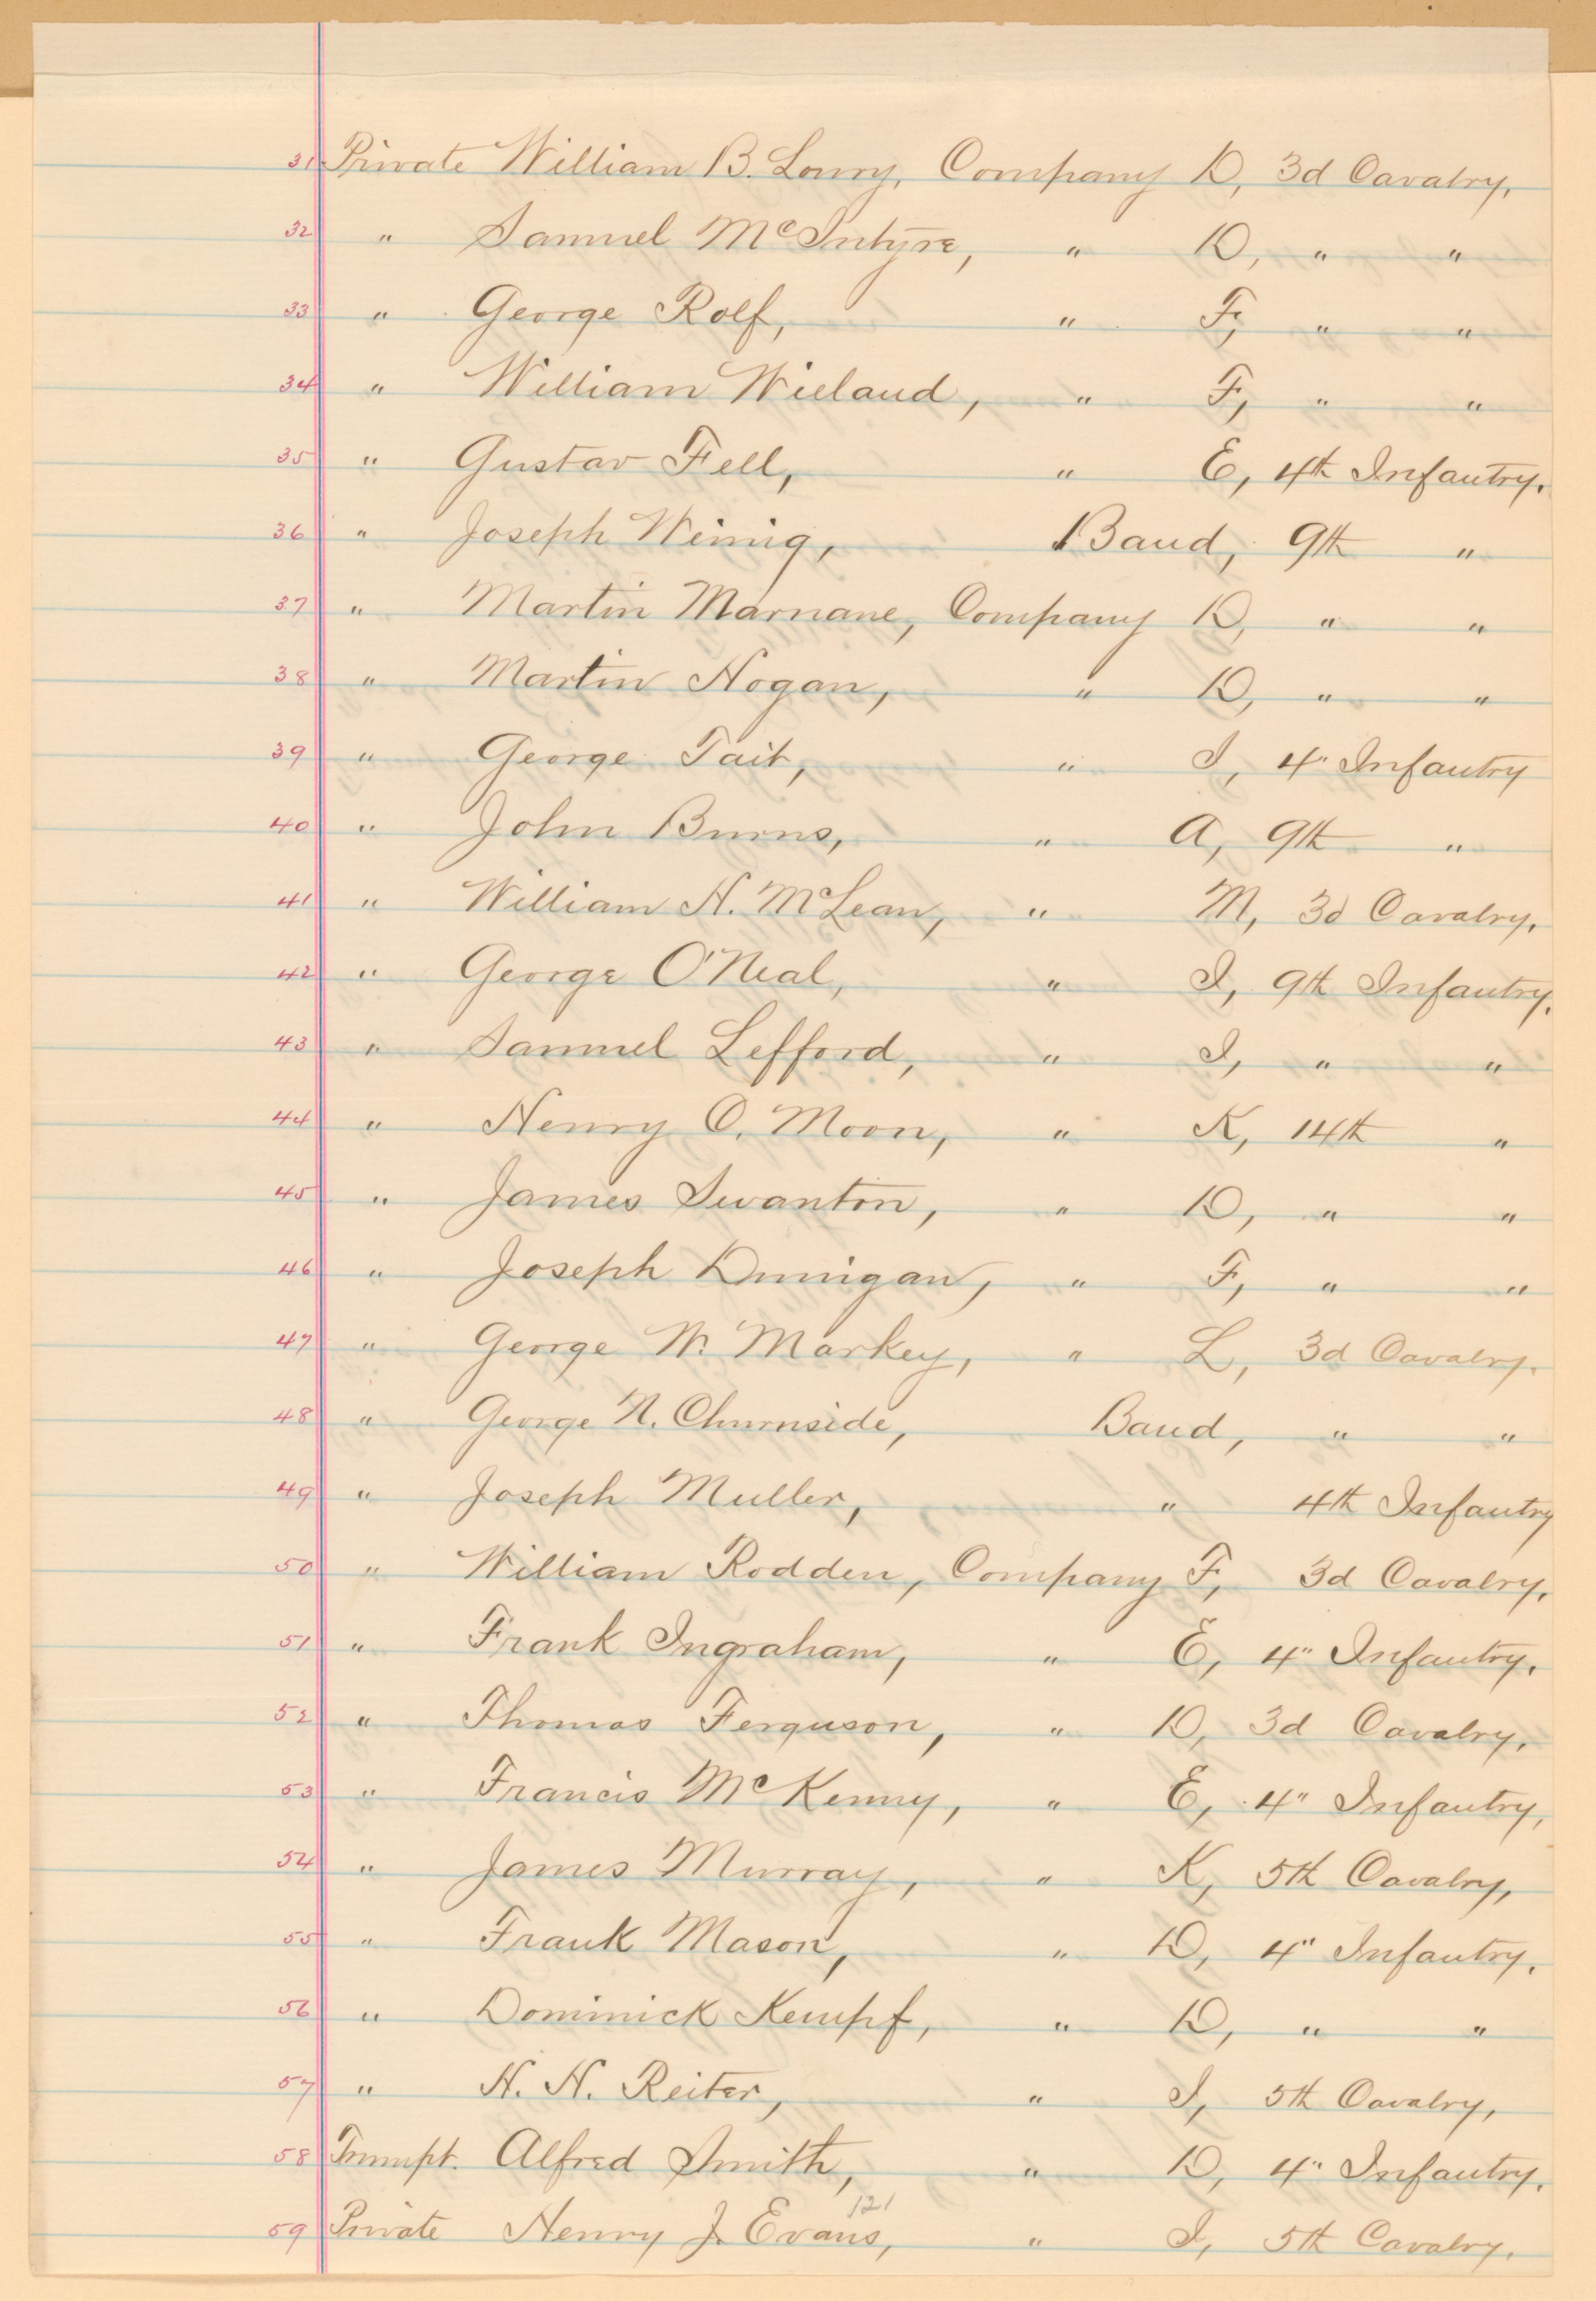 31 Private William B. Lowry, Company D, 3d Cavalry,
32 " Samuel McIntyre, " D, " "
33 " George Rolf, " F, " "
34 " William Wieland, " F, " "
35 " Gustav Fell, " E, 4th Infantry.
36 " Joseph Wining, Band, 9th "
37 " Martin Marnane, Company D, " "
38 " Martin Hogan, " D, " "
39 " George Tait, " I, 4" Infantry
40 " John Burns, " A, 9th "
41 " William H. McLean, " M, 3d Cavalry.
42 " George O'Neal, " I, 9th Infantry.
43 " Samuel Lefford, " I, " "
44 " Henry O. Moon, " K, 14th "
45 " James Swanton, " D, " "
46 " Joseph Dunigan, " F, " "
47 " George W. Markey, " L, 3d Cavalry.
48 " George N. Churnside, Band, " "
49 " Joseph Muller, " 4th Infantry
50 " William Rodden, Company F, 3d Cavalry,
51 " Frank Ingraham, " E, 4" Infantry.
52 " Thomas Ferguson, " D, 3d Cavalry,
53 " Francis McKenny, " E, 4" Infantry,
54 " James Murray, " K, 5th Cavalry,
55 " Frank Mason, " D, 4" Infantry.
56 " Dominick Kempf, " D, " "
57 " H. H. Reiter, " I, 5th Cavalry,
58 Trumpt. Alfred Smith, " D, 4" Infantry.
121
59 Private Henry J. Evans, " I, 5th Cavalry.